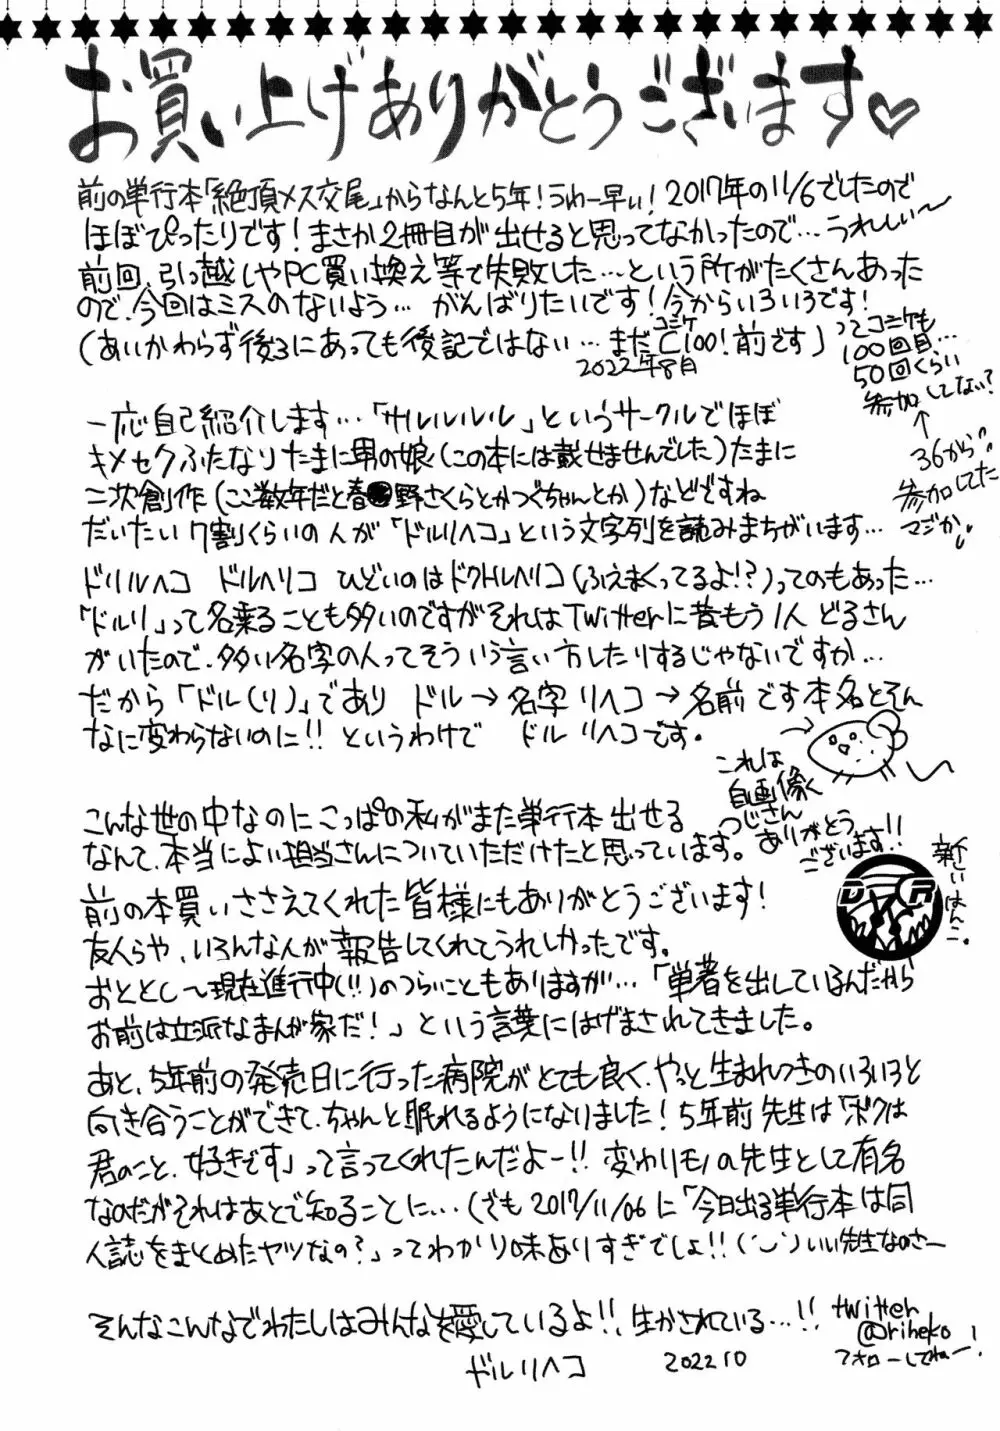 お買い上げありがとうございます♡
前の単行本「絶頂メス交尾」からなんと5年!うわー早い!2017年の11/6でしたので
ほぼぴったりです!まさか2冊目が出せると思ってなかったので…うれしい〜
前回、引っ越しやPC買い換え等で失敗した…という所がたくさんあった
ので、今回はミスのないよう…がんばりたいです!今からいろいろです!
(あいかわらず後ろにあっても後記ではない…まだC100!前です)
コミケ
2022年8月
ってコミケも
100回目…
50回くらい
参加してない?
↑
36から
参加してた
マジか
一応自己紹介します…「サルルルルル」というサークルでほぼ
キメセクふたなりたまに男の娘(この本には載せませんでした)たまに
二次創作(ここ数年だと春●野さくらとかつぐちゃんとか)などですね
だいたい7割くらいの人が「ドルリヘコ」という文字列を読みまちがいます…
ドリルヘコ ドルヘリコ ひどいのはドクトルヘリコ(ふえまくってるよ!?)ってのもあった…
「ドルリ」って名乗ることも多いのですがそれはTwitterに昔もう1人どるさん
がいたので、多い名字の人ってそういう言い方したりするじゃないですか…
だから「ドル(リ)」であり ドル→名字 リヘコ→名前です本名とそん
なに変わらないのに!!というわけで ドル リヘコです。
→
これは
自画像く
つじさん
ありがとう
ございます!!
こんな世の中なのにこっぱの私がまた単行本出せる
なんて、本当によい担当さんについていただけたと思っています。
新しいはんこ。
DR
前の本買いささえてくれた皆様にもありがとうございます!
友人らや、いろんな人が報告してくれてうれしかったです。
おととし〜現在進行中(!!)のつらいこともありますが…「単著を出しているんだから
お前は立派なまんが家だ!」という言葉にはげまされてきました。
あと、5年前の発売日に行った病院がとても良く、やっと生まれつきのいろいろと
向き合うことができて、ちゃんと眠れるようになりました!5年前先生は「ボクは
君のこと、好きです」って言ってくれたんだよー!!変わりモノの先生として有名
なのだがそれはあとで知ることに…(でも2017/11/06に「今日出る単行本は同
人誌をまとめたヤツなの?」ってわかり味ありすぎでしょ!!(˙˘˙)いい先生なのさー
そんなこんなでわたしはみんなを愛しているよ!!生かされている…!!
twitter
@riheko
フォローしてねー!
ドルリヘコ 2022 10